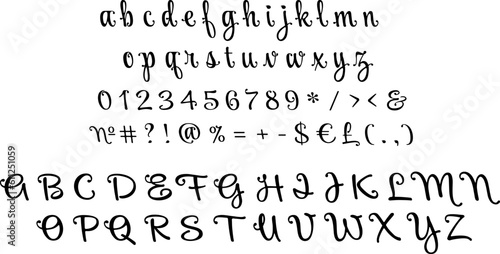 a b c d e f g h i j k l m n
o p q r s t u v w x y z
0 1 2 3 4 5 6 7 8 9 * / > < &
№ # ? ! @ % = + - $ € £ ( . , )
A B C D E F G H I J K L M N
O P Q R S T U V W X Y Z
Adobe Stock